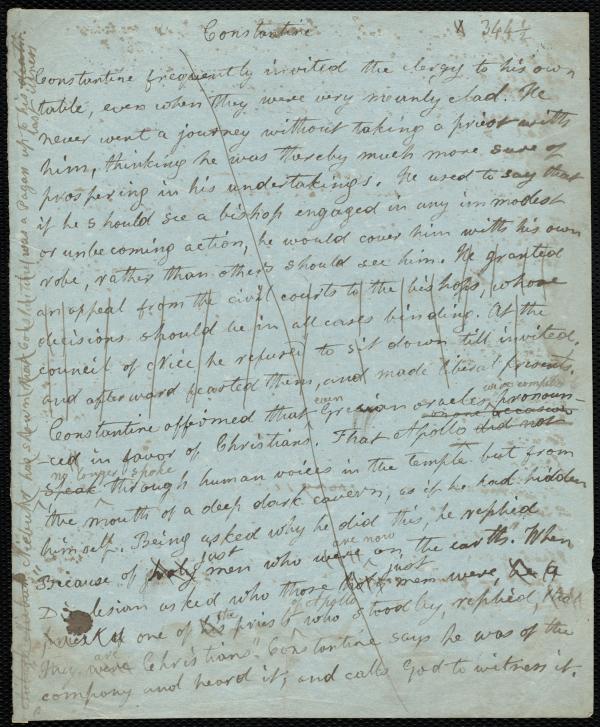 Constantine
X 344½
Constantine frequently invited the clergy to his own
table, even when they were very meanly clad. He
never went a journey without taking a priest with
him, thinking he was thereby much more sure of
prospering in his undertakings. He used to say that
if he should see a bishop engaged in any immodest
or unbecoming action, he would cover him with his own
robe, rather than others should see him. He granted
an appeal from the civil courts to the bishops, whose
decisions should be in all cases binding. At the
council of Nice he refused to sit down till invited,
and afterward feasted them, and made liberal presents.
were compelled
Constantine affirmed that even Grecian oracles pronoun-
ced in favor of Christians. That Apollo did not
no longer spoke
speak through human voices in the temple but from
the mouth of a deep dark cavern, as if he had hidden
himself. Being asked why he did this, he replied
just are now
Because of holy men who were on the earth." When
just
asked who those men were,
the of Apollo
priest of one of his priests who stood by, replied,
are
they were Christians." Constantine says he was of the
company and heard it; and calls God to witness it.
has shown that was a Pagan up to his death
last illness